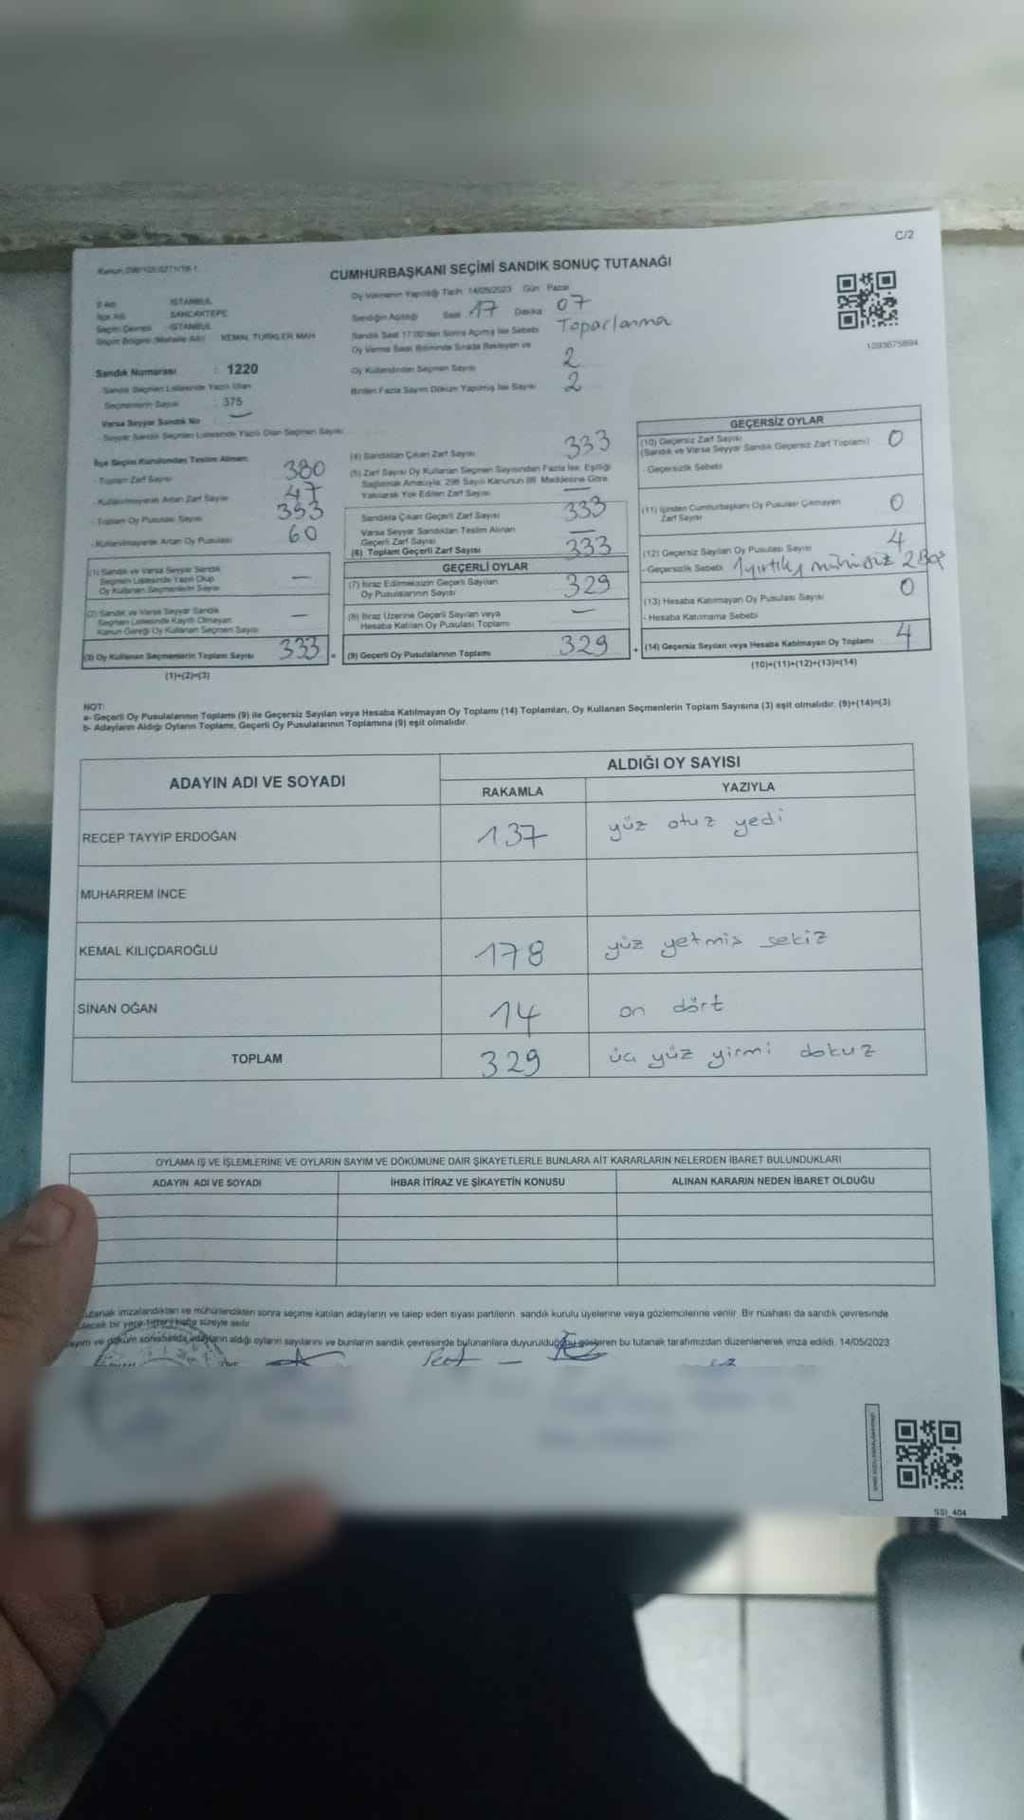 C/2
CUMHURBAŞKANI SEÇİMİ SANDIK SONUÇ TUTANAĞI
Oy Vermenin Yapıldığı Tarih 14/05/2023 Gün Pazar
İli Adı İSTANBUL
İlçe Adı SANCAKTEPE
Seçim Çevresi İSTANBUL
Seçim Bölgesi (Mahalle Adı) KEMAL TÜRKLER MAH
Sandığın Açıldığı Saat 17 Dakika 07
Sandık Saat 17:00'den Sonra Açılmış İse Sebebi Toparlanma
Oy Verme Saati Bitiminde Sırada Bekleyen ve
Oy Kullandırılan Seçmen Sayısı 2
Birden Fazla Sayım Döküm Yapılmış İse Sayısı 2
1293675894
Sandık Numarası : 1220
Sandık Seçmen Listesinde Yazılı Olan
Seçmenlerin Sayısı : 375
Varsa Seyyar Sandık No —
- Seyyar Sandık Seçmen Listesinde Yazılı Olan Seçmen Sayısı:
İlçe Seçim Kurulundan Teslim Alınan:
- Toplam Zarf Sayısı 380
- Kullanılmayarak Artan Zarf Sayısı 47
- Toplam Oy Pusulası Sayısı 393
- Kullanılmayarak Artan Oy Pusulası 60
(1) Sandık ve Varsa Seyyar Sandık
Seçmen Listesinde Yazılı Olup
Oy Kullanan Seçmenlerin Sayısı —
(2) Sandık ve Varsa Seyyar Sandık
Seçmen Listesinde Kayıtlı Olmayan
Kanun Gereği Oy Kullanan Seçmen Sayısı —
(3) Oy Kullanan Seçmenlerin Toplam Sayısı 333
(1)+(2)=(3)
(4) Sandıktan Çıkan Zarf Sayısı 333
(5) Zarf Sayısı Oy Kullanan Seçmen Sayısından Fazla İse, Eşitliği
Sağlamak Amacıyla, 298 Sayılı Kanunun 98. Maddesine Göre
Yakılarak Yok Edilen Zarf Sayısı —
Sandıkta Çıkan Geçerli Zarf Sayısı 333
Varsa Seyyar Sandıktan Teslim Alınan
Geçerli Zarf Sayısı —
(6) Toplam Geçerli Zarf Sayısı 333
GEÇERLİ OYLAR
(7) İtiraz Edilmeksizin Geçerli Sayılan
Oy Pusulalarının Sayısı 329
(8) İtiraz Üzerine Geçerli Sayılan veya
Hesaba Katılan Oy Pusulası Toplamı —
(9) Geçerli Oy Pusulalarının Toplamı 329
GEÇERSİZ OYLAR
(10) Geçersiz Zarf Sayısı
(Sandık ve Varsa Seyyar Sandık Geçersiz Zarf Toplamı) 0
- Geçersizlik Sebebi
(11) İçinden Cumhurbaşkanı Oy Pusulası Çıkmayan
Zarf Sayısı 0
(12) Geçersiz Sayılan Oy Pusulası Sayısı 4
- Geçersizlik Sebebi 1 yırtık, mühürsüz 2 Boş
(13) Hesaba Katılmayan Oy Pusulası Sayısı 0
- Hesaba Katılmama Sebebi
(14) Geçersiz Sayılan veya Hesaba Katılmayan Oy Toplamı 4
(10)+(11)+(12)+(13)=(14)
NOT:
a- Geçerli Oy Pusulalarının Toplamı (9) ile Geçersiz Sayılan veya Hesaba Katılmayan Oy Toplamı (14) Toplamları, Oy Kullanan Seçmenlerin Toplam Sayısına (3) eşit olmalıdır. (9)+(14)=(3)
b- Adayların Aldığı Oyların Toplamı, Geçerli Oy Pusulalarının Toplamına (9) eşit olmalıdır.
ADAYIN ADI VE SOYADI ALDIĞI OY SAYISI
RAKAMLA YAZIYLA
RECEP TAYYİP ERDOĞAN 137 yüz otuz yedi
MUHARREM İNCE
KEMAL KILIÇDAROĞLU 178 yüz yetmiş sekiz
SİNAN OĞAN 14 on dört
TOPLAM 329 üç yüz yirmi dokuz
OYLAMA İŞ VE İŞLEMLERİNE VE OYLARIN SAYIM VE DÖKÜMÜNE DAİR ŞİKAYETLERLE BUNLARA AİT KARARLARIN NELERDEN İBARET BULUNDUKLARI
ADAYIN ADI VE SOYADI İHBAR İTİRAZ VE ŞİKAYETİN KONUSU ALINAN KARARIN NEDEN İBARET OLDUĞU
tutanak imzalandıktan ve mühürlendikten sonra seçime katılan adayların ve talep eden siyasi partilerin sandık kurulu üyelerine veya gözlemcilerine verilir. Bir nüshası da sandık çevresinde
bir yere bir hafta süreyle asılır.
ve döküm sonucunda adayların aldığı oyların sayılarını ve bunların sandık çevresinde bulunanlara duyurulduğunu gösteren bu tutanak tarafımızdan düzenlenerek imza edildi. 14/05/2023
SSI_404